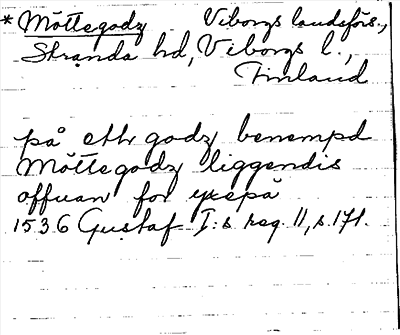 * Möttegodz Viborgs landsförs.,
Stranda hd, Viborgs l.,
Finland
på ett godz benempd
Möttegodz liggendis
offuan for
1536 Gustaf I:s reg. 11, s. 171.